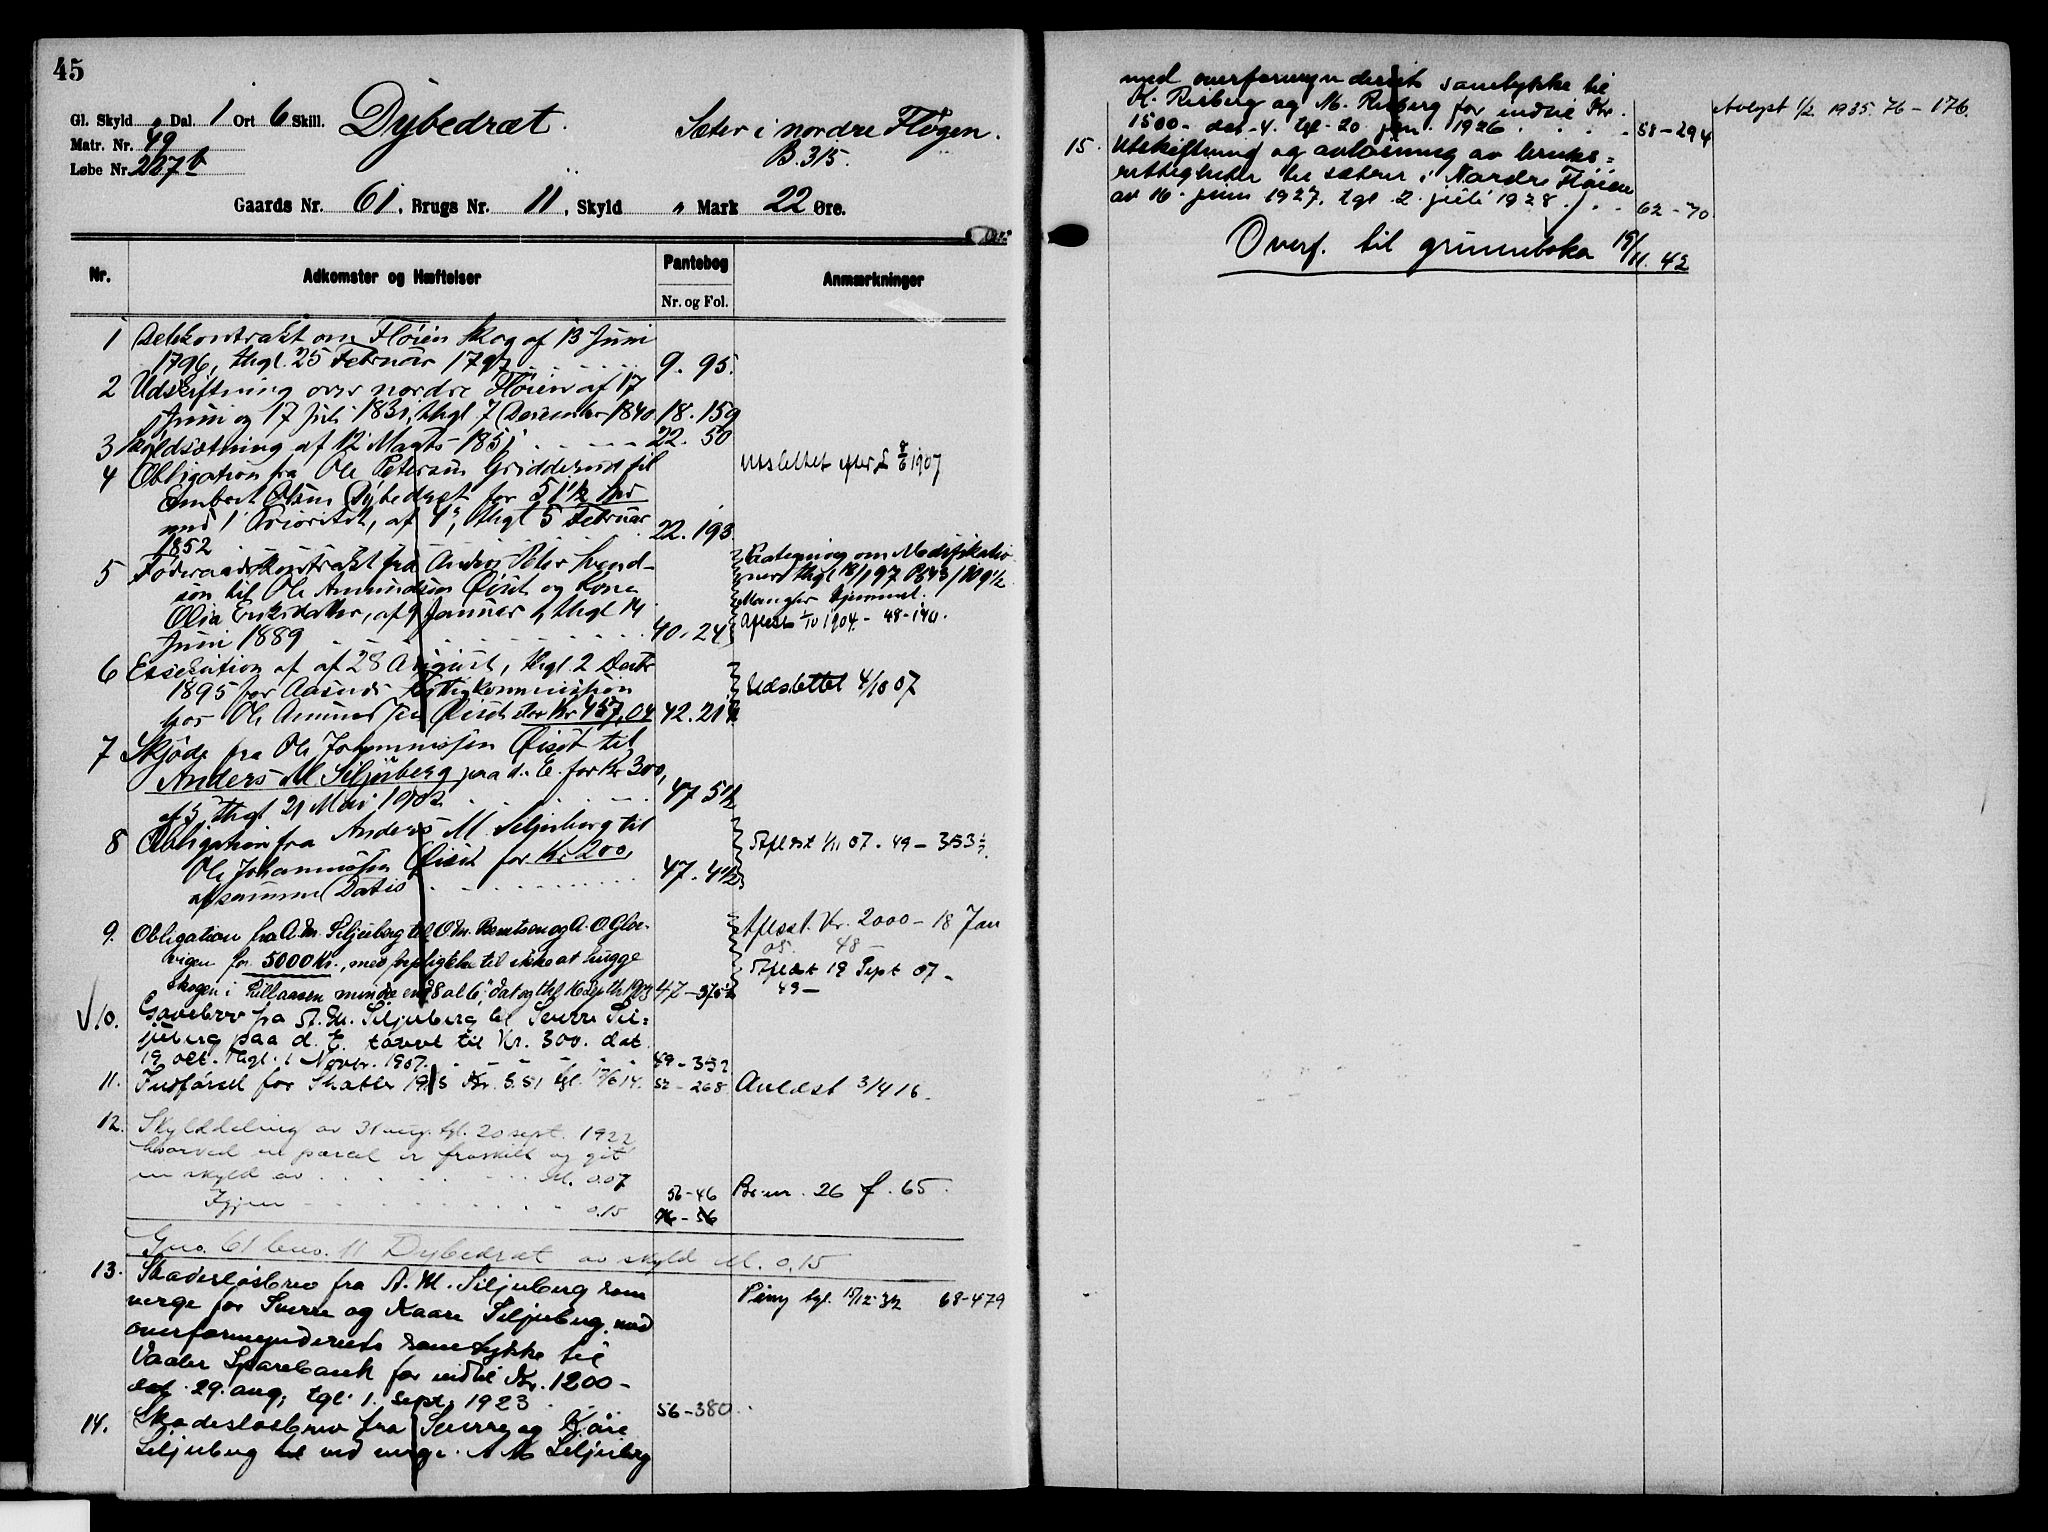 45
Gl. Skyld " Dal. 1 Ort 6 Skill. Dybedræt. Sæter i nordre Fløgen.
Matr. Nr. 49 B. 315.
Løbe Nr. 227 b
Gaards Nr. 61, Brugs Nr. 11, Skyld " Mark 22 Øre.
Nr. Adkomster og Hæftelser Pantebog Anmærkninger
Nr. og Fol.
1 Delekontrakt om Fløien Skog af 13 Juni
1796, thgl. 25 Februar 1797 9. 95.
2 Udskiftning over nordre Fløien af 17
Juni og 17 Juli 1831, thgl 7 December 1840 18. 159
3 Skyldsætning af 12 Marts 1851 22. 50
4 Obligation fra Ole Petersen Griddesrud til Utslettet efter L 8/6 1907
Embret Olsen Dybedræt for 51 1/2 Spd
med 1 Prioritet, af 4, thgl 5 Februar
1852 22. 193
5 Føderaadskontrakt fra Anders Peter Svend- Paategning om Modifikatio
sen til Ole Amundsen Qvist og Kone ner thgl 18/1 97 Pb 43/109 1/2
Olia Eriksdatter, af 9 Januar, thgl 14 Mangler Hjemmel.
Juni 1889 40. 24 Aflæst 1/10 1904. - 48-140.
6 Exsekution af af 28 August, thgl. 2 Septbr
1895 for Aasnes Fattigkommission Udslettet 4/10 07
hos Ole Amundsen Qvist stor Kr 457,04 42. 21
7 Skjøde fra Ole Johannissen Qvist til
Anders M. Siljuberg paa d. E. for Kr 300,
af 5, thgl 21 Mai 1902 47 5 1/2
8 Obligation fra Anders M. Siljuberg til
Ole Johannissen Qvist for Kr 200, Aflæst 1/11 07. 49 - 353
af samme Datis 47. 4 1/2
9. Obligation fra A. M. Siljuberg til O. M. Berntsen og A. O. Glor- Aflæst. Kr. 2000 - 18 Jan
vigen for 5000 Kr., med forpligtelse til ikke at hugge 05. 48 -
Skogen i Lillaasen mindre end 8 al 6", dat og thgl 16 Septbr 1903 47 - 375 Aflæst 19 Sept 07 -
49 -
V 10. Gavebrev fra A. M. Siljuberg til Sverre Sil=
juberg paa d. E. taxert til Kr. 300. dat.
19 okt. Thgl. 1 Novbr. 1907. 49 - 352
11. Indførsel for Skatter 1913 Kr. 5.51 tgl. 17/6 14. 52 - 268 Avlæst 3/4 16.
12. Skylddeling av 31 aug. tgl. 20 sept. 1922
hvorved en parcel er fraskilt og git
en skyld av M. 0.07 56-46 Br.nr. 26 f. 65.
Igjen 0.15
Gno. 61 bno. 11 Dybedræt av skyld M. 0.15
13. Skadesløsbrev fra A. M. Siljuberg som
verge for Sverre og Kaare Siljuberg, med tgl. 15/12-32 68-479
overformynderiets samtykke til
Vaaler Sparebank for indtil Kr. 1200 -
dat. 29. aug, tgl. 1. sept. 1923 56-380
14. Skadesløsbrev fra Sverre og Kåre
Siljuberg ved verge A M Siljuberg
med overformynderiets samtykke til
K. Risberg og M. Risberg for indtil Kr. Avlyst 1/2 1935. 76 - 176.
1500 - dat. 4. tgl. 20. jan. 1926 58-294
15. Utskiftning og avløsning av bruks=
rettigheter til sætrer i Nordre Fløien
av 16. juni 1927, tgl. 2. juli 1928. 62-70
Overf. til grunnboka 19/11.42